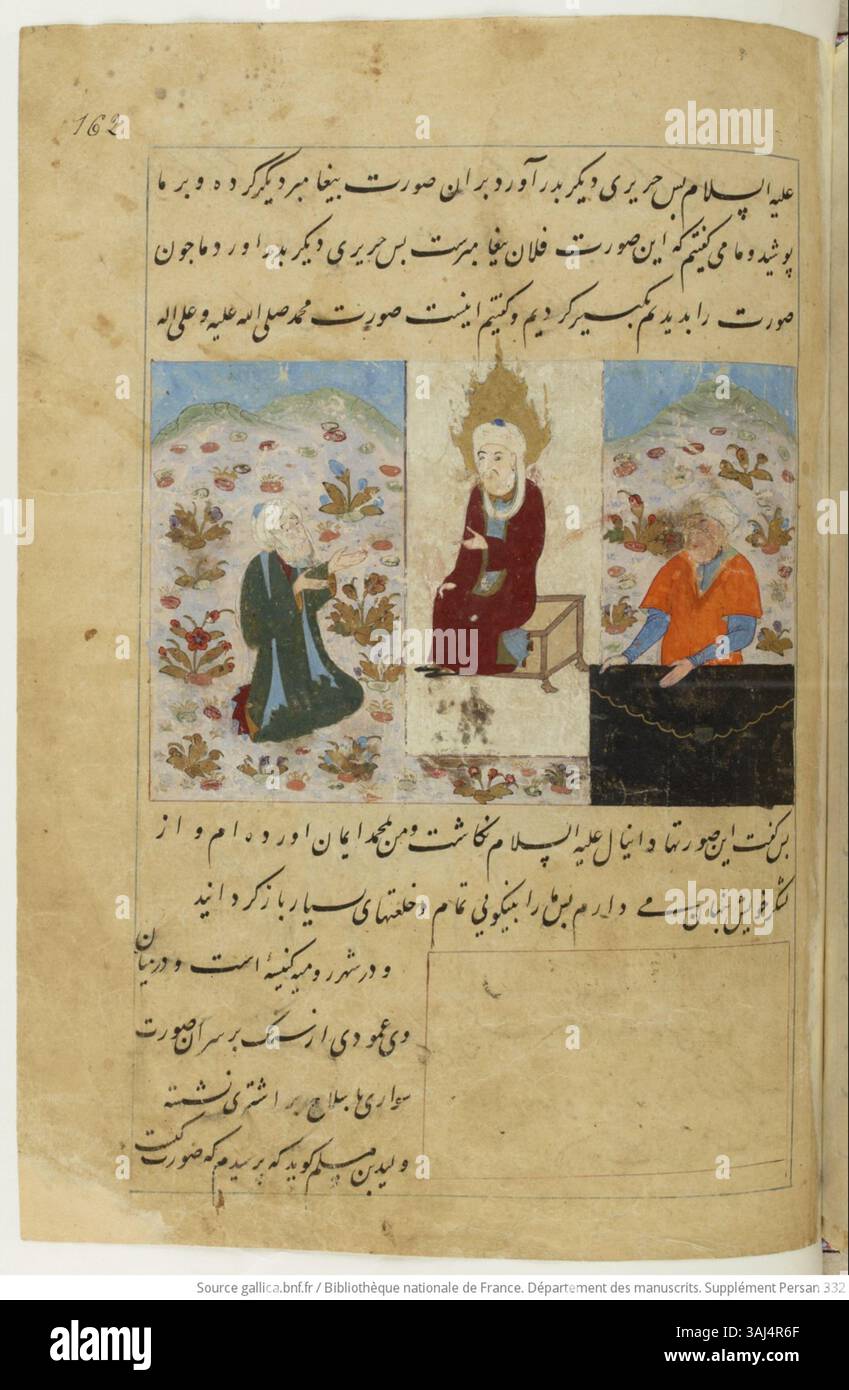 162
علیه السلام بس حریری دیکر بدر آورد بران صورت بیغامبر دیکر کرده و بر ما
پوشید و ما می کفتیم که این صورت فلان بیغامبرست بس حریری دیکر بدر اورد ما جون
صورت را بدیدیم تکبیر کردیم و کفتیم اینست صورت محمد صلی الله علیه و علی اله
برکفت این صورتها دانیال علیه السلام نکاشت و من بمحمد ایمان اورده ام و از
لشکر خویش بنهان می دارم بس ما را بنیکویی تمام و خلعتهای بسیار باز کردانید
و در شهر رومیه کنیسهٔ است و درمیان
وی عمودی از سنک بر سر آن صورت
سواری با سلاح بر اشتری نشسته
ولید بن مسلم کوید که برسیدم که صورت کیست
Source gallica.bnf.fr / Bibliothèque nationale de France. Département des manuscrits. Supplément Persan 332
alamy
Image ID: 3AJ4R6F
www.alamy.com